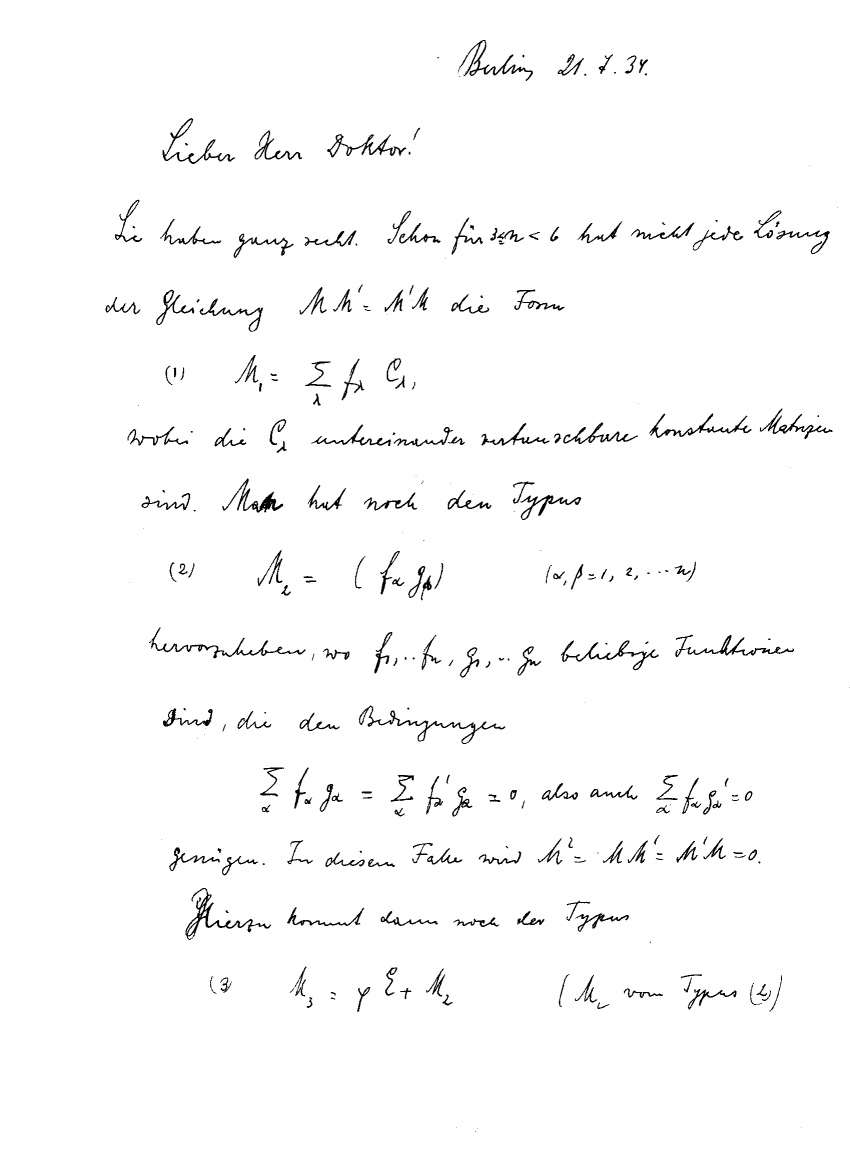 Berlin, 21. 7. 34.
Lieber Herr Doktor!
Sie haben ganz recht. Schon für 3≤n<6 hat nicht jede Lösung
der Gleichung MM' = M'M die Form
(1) M₁ = Σ_λ f_λ C_λ,
wobei die C_λ untereinander vertauschbare konstante Matrizen
sind. Man hat noch den Typus
(2) M₂ = (f_α g_β) (α, β = 1, 2, ... n)
hervorzuheben, wo f₁,.. f_n, g₁,.. g_n beliebige Funktionen
sind, die den Bedingungen
Σ_α f_α g_α = Σ_α f'_α g_α = 0, also auch Σ_α f_α g'_α = 0
genügen. In diesem Falle wird M² = MM' = M'M = 0.
Hierzu kommt dann noch der Typus
(3 M₃ = φ E + M₂ (M₂ vom Typus (2))